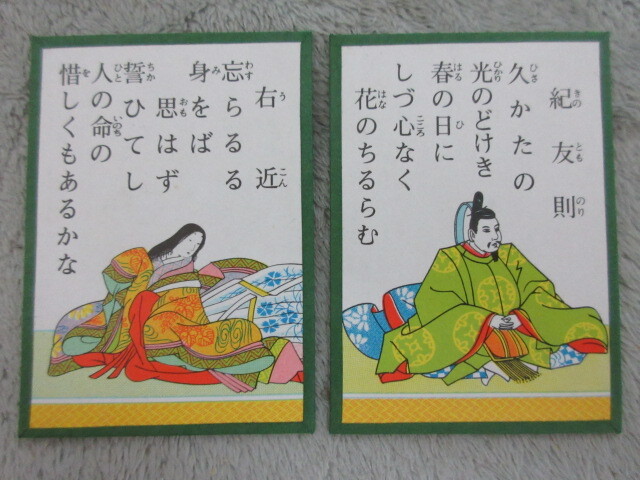 紀友則
久かたの
光のどけき
春の日に
しづ心なく
花のちるらむ
右近
忘らるる
身をば
思はず
誓ひてし
人の命の
惜しくもあるかな